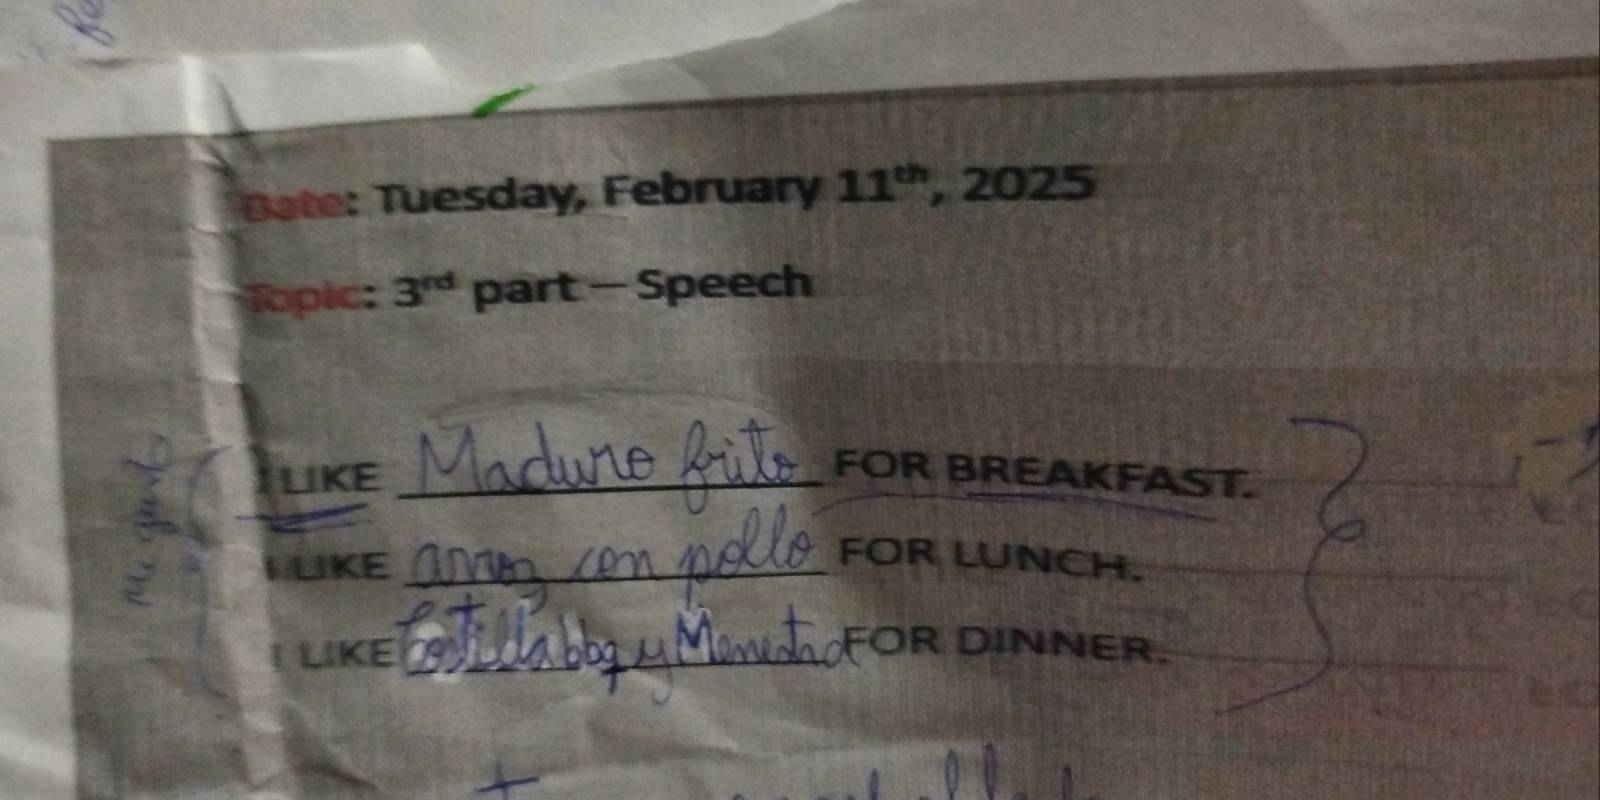 Date: Tuesday, February 11th, 2025
Topic: 3rd part – Speech
I LIKE Maduro frito FOR BREAKFAST.
I LIKE arroz con pollo FOR LUNCH.
I LIKE Costilla bbq y Menestra FOR DINNER.
me gusta